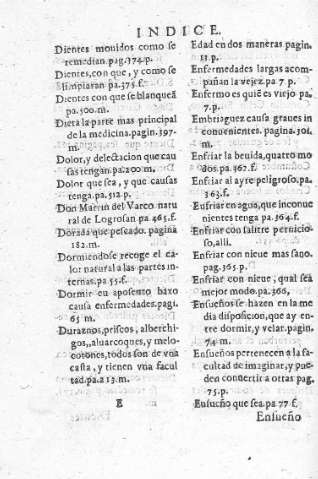 INDICE.
Dientes mouidos como se
remedian.pag.374.p.
Dientes,con que, y como se
limpiaran pa.375.f.
Dientes con que se blanqueã
pa.500.m.
Dieta la parte mas principal
de la medicina.pagin.397.
m.
Dolor,y delectacion que cau
sas tengan.pa.200 m.
Dolor que sea, y que causas
tenga.pa.512.p.
Don Martin del Varco natu
ral de Logrosan pa.465.f.
Dorada que pescado. pagina
182.m.
Dormiendose recoge el ca-
lor natural a las partes in-
ternas.pa 55.f.
Dormir en aposento baxo
causa enfermedades.pagi.
65 m.
Duraznos,priscos, alberchi-
gos,,aluarcoques, y melo-
cotones,todos son de vna
casta, y tienen vna facul
tad.pa.213.m.
E
Edad en dos maneras pagin.
11.p.
Enfermedades largas acom-
pañan la vejez.pa 7 p.
Enfermo es quiē es viejo pa.
7.p.
Embriaguez causa graues in
conuenientes. pagina.301.
m.
Enfriar la beuida,quatro mo
dos.pa.367.f.
Enfriar al ayre peligroso.pa.
363.f.
Enfriar en agua,que inconue
nientes tenga pa.364.f.
Enfriar con salitre pernicio-
so,alli.
Enfriar con nieue mas sano.
pag.365 p.
Enfriar con nieue, qual sea
mejor modo.pa.366,
Ensueños se hazen en la me
dia disposicion,que ay en-
tre dormir,y velar.pagin.
74 m.
Ensueños pertenecen a la fa-
cultad de imaginar,y pue-
den conuertir a otras pag.
75.p.
Ensueño que sea.pa 77 f.
Ensueño